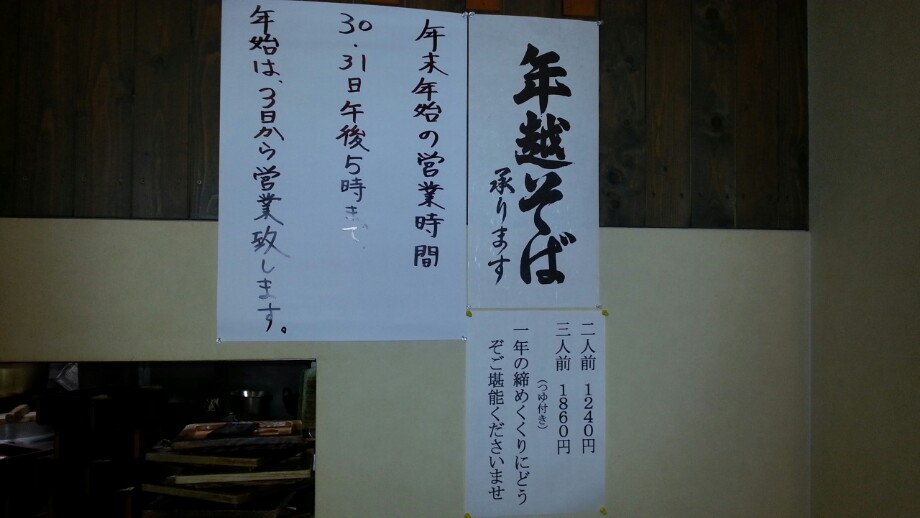 年越そば
承ります
二人前 1240円
三人前 1860円
（つゆ付き）
一年の締めくくりにどう
ぞご堪能くださいませ
年末年始の営業時間
30.31日午後5時まで、
年始は、3日から営業致します。